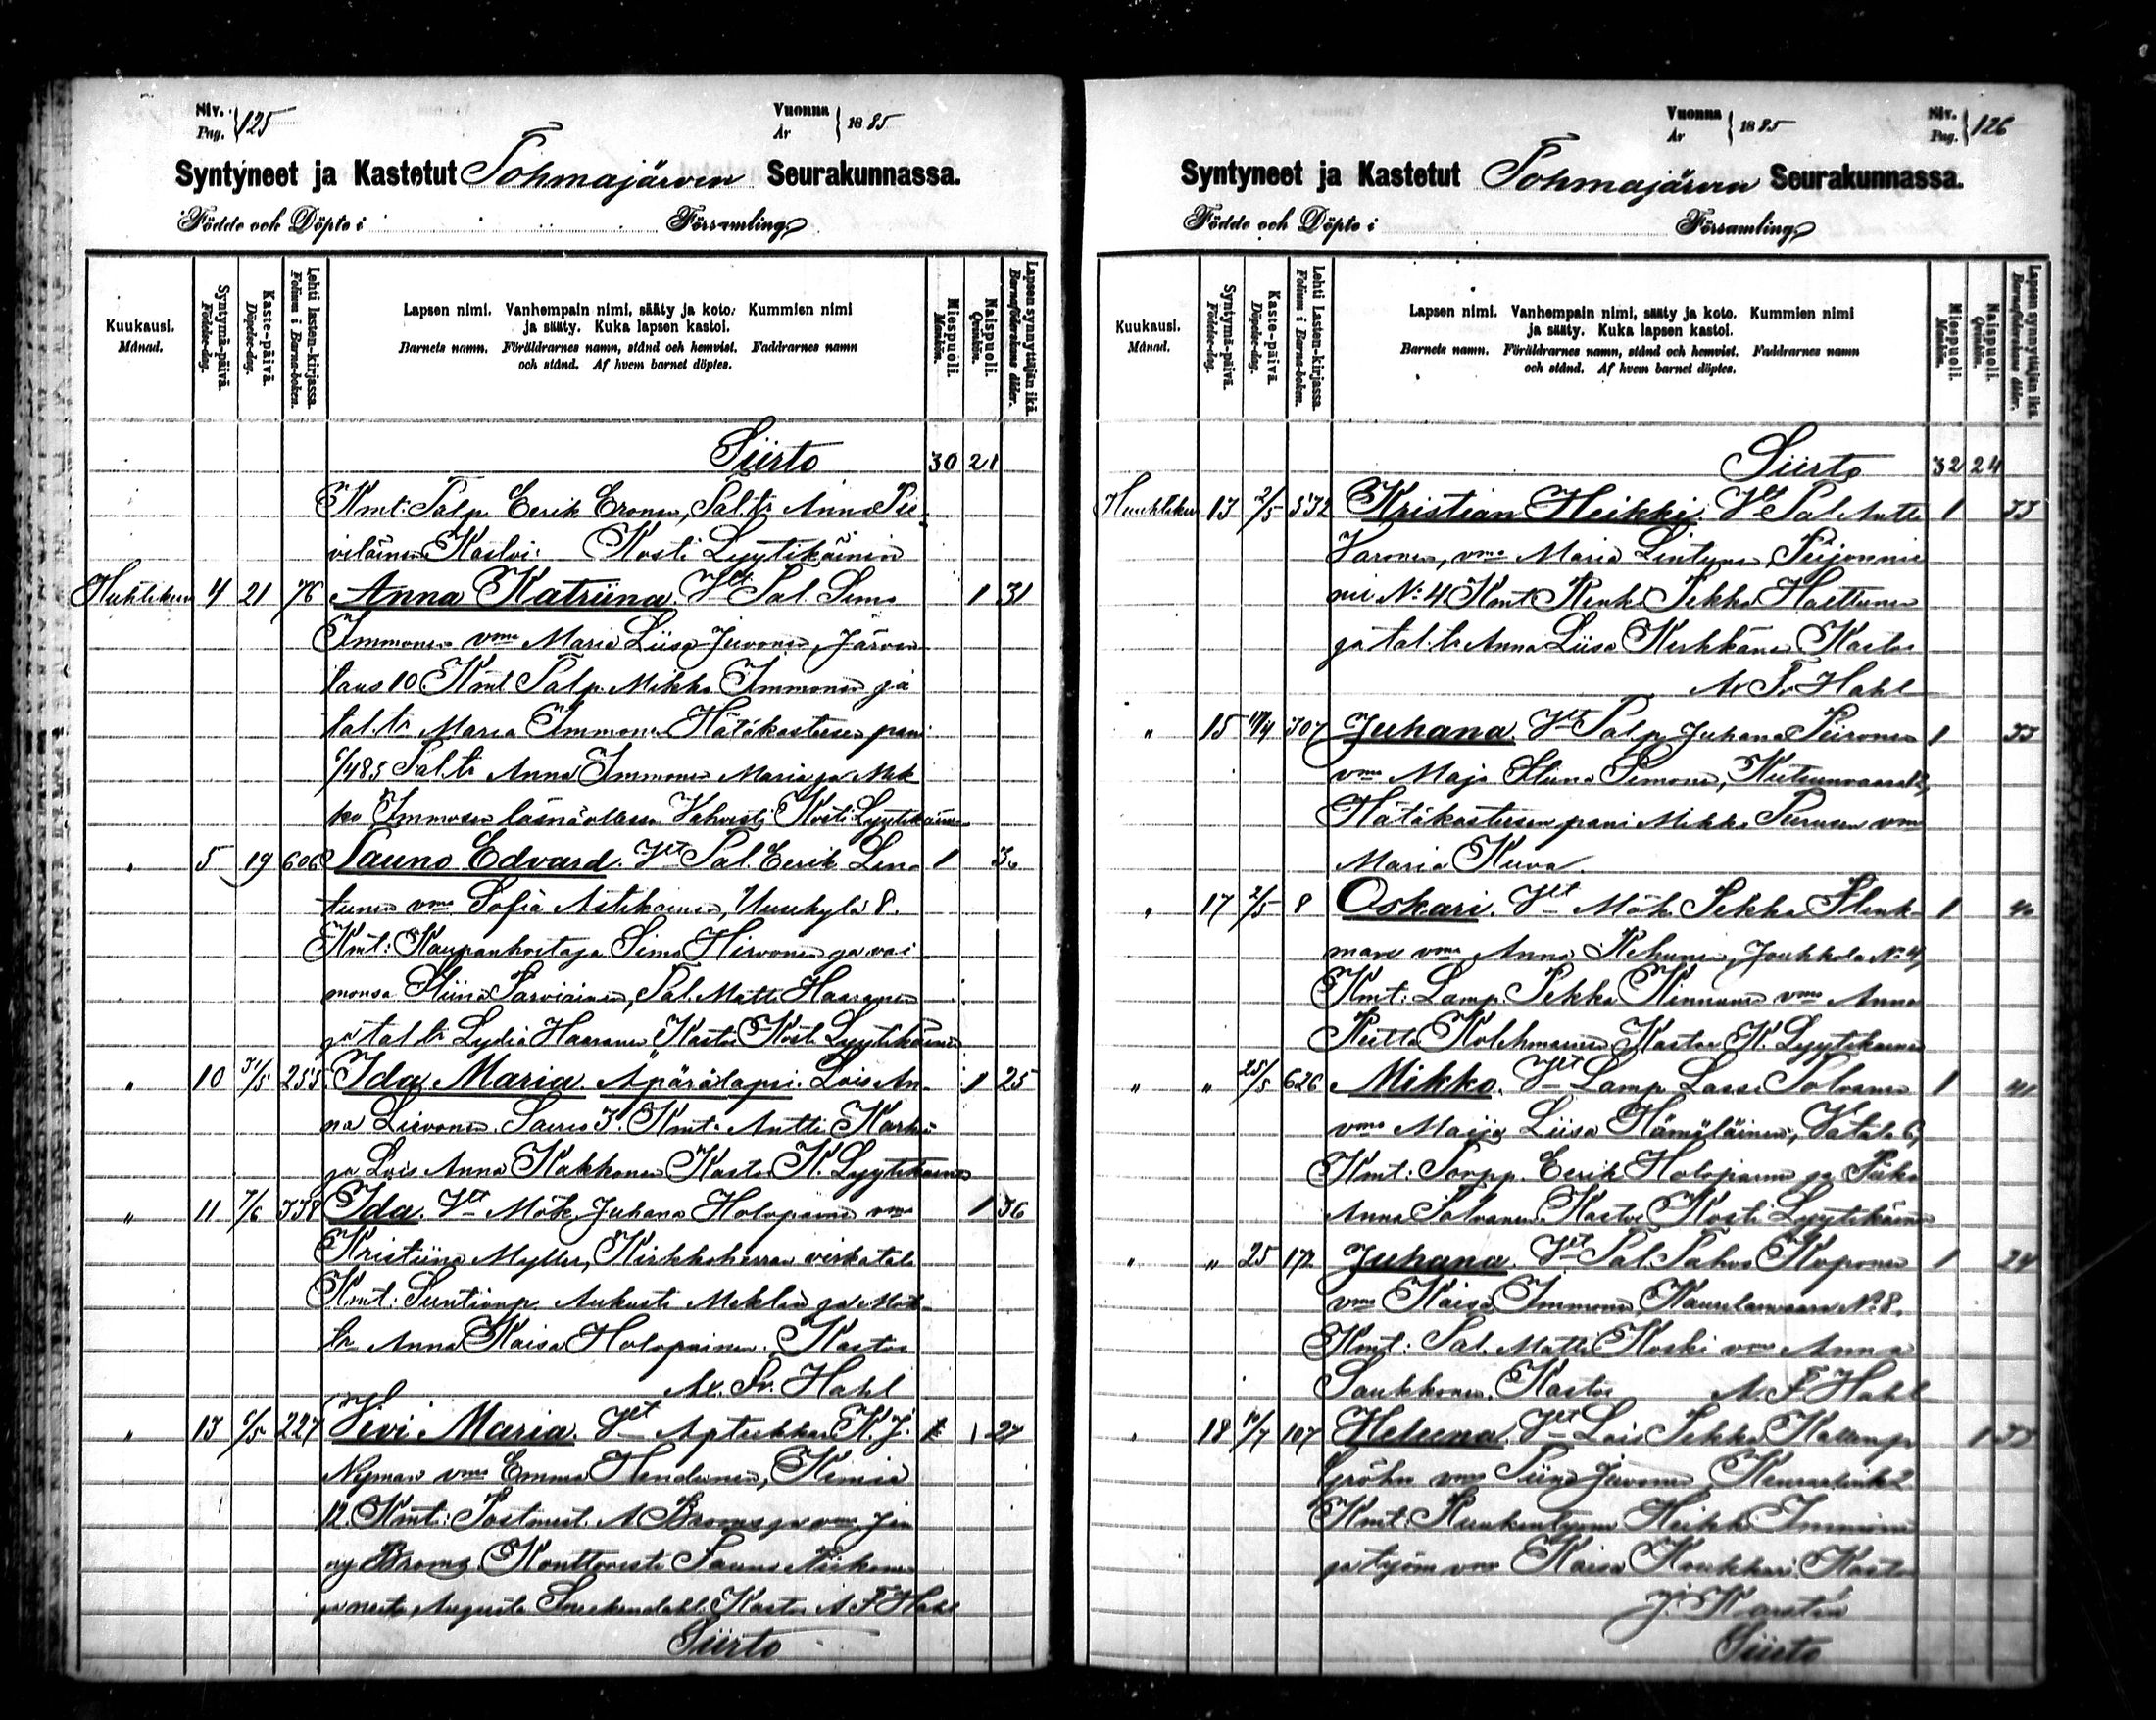 Siv. Pag. 125
Vuonna År 1885
Syntyneet ja Kastetut Tohmajärven Seurakunnassa.
Födde och Döpte i Församling
Kuukausi. Månad.
Syntymä-päivä. Födelse-dag.
Kaste-päivä. Döpelse-dag.
Lehti lasten-kirjassa. Folium i Barna-boken.
Lapsen nimi. Vanhempain nimi, sääty ja koto. Kummien nimi
ja sääty. Kuka lapsen kastoi.
Barnets namn. Föräldrarnes namn, stånd och hemvist. Faddrarnes namn
och stånd. Af hvem barnet döptes.
Miespuoli. Mankön.
Naispuoli. Qvinkön.
Lapsen synnyttäjän ikä. Barnaföderskans ålder.
Siirto 30 21
Kmt: Talp. Eerik Eronen, Tal. tr Anna
Kastoi: Kosti Lyytikäinen
Huhtikuu 4 21 76 Anna Katriina. Vt Tal. Simo 1 31
Immonen vmo Maria Liisa Juvonen, Järven
taus 10. Kmt Talp. Mikko Immonen ja
tal. tr Maria Immonen Hätäkasteesen pani
6/4 85 Tal. tr Anna Immonen Maria ja Mik
ko Immosen läsnäollessa Vahvisti Kosti Lyytikäinen
" 5 19 606 Tauno Edvard. Vt Tal. Eerik 1 36
vmo Sofia Asikainen, Uusikylä 8.
Kmt: Kaupanhoitaja Simo Hirvonen ja vai
monsa Tarviainen, Tal. Matti Haaranen
ja tal. tr Lydia Haaranen Kastoi Kosti Lyytikäinen
" 10 31/5 255 Ida Maria. Äpärälapsi. Lois An- 1 25
na Lievonen. Saario 3. Kmt. Antti Karhu
ja Lois Anna Kakkonen Kastoi K. Lyytikäinen
" 11 7/6 338 Ida. Vt Mök. Juhana Holopainen vmo 1 36
Kristiina Myller, Kirkkoherran virkatalo
Kmt: Suntionp. Aukusti Meklin ja Mök
tr Anna Kaisa Holopainen. Kastoi
A. Fr. Hahl
" 13 6/5 227 Vivi Maria. Vt Aptekkari K. J. 1 27
Nyman vmo Emma Hendunen, Kemie
12. Kmt: Postmest. A Broms ja vmo Jen
ny Broms, Konttoristi
ja neiti Augusta Kastoi A F Hahl
Siirto
Vuonna År 1885
Siv. Pag. 126
Syntyneet ja Kastetut Tohmajärven Seurakunnassa.
Födde och Döpte i Församling
Kuukausi. Månad.
Syntymä-päivä. Födelse-dag.
Kaste-päivä. Döpelse-dag.
Lehti Lasten-kirjassa. Folium i Barna-boken.
Lapsen nimi. Vanhempain nimi, sääty ja koto. Kummien nimi
ja sääty. Kuka lapsen kastoi.
Barnets namn. Föräldrarnes namn, stånd och hemvist. Faddrarnes namn
och stånd. Af hvem barnet döptes.
Miespuoli. Mankön.
Naispuoli. Qvinkön.
Lapsen synnyttäjän ikä. Barnaföderskans ålder.
Siirto 32 24
Huhtikuu 13 2/5 532 Kristian Heikki. Vt Tal Antti 1 33
Varonen, vmo Maria Lintunen, Peijonnie
mi No: 4 Kmt Renki Pekka Halttunen
ja tal. tr Anna Liisa Kerkkänen Kastoi
A. Fr Hahl
" 15 307 Juhana. Vt Talp. Juhana Piironen 1 33
vmo Maja Simonen, Kutsunvaara 12,
Hätäkasteesen pani Mikko Turunen vmo
Maria Kuva.
" 17 2/5 8 Oskari. Vt Mök. Pekka 1 40
man vmo Anna Rehunen, Jouhkola No 4,
Kmt: Lamp. Pekka Kinnunen vmo Anna
Reetta Kolehmainen Kastoi K. Lyytikäinen
" " 25/5 626 Mikko. Vt Lamp. Lassi Tolvanen 1 41
vmo Maija Liisa Hämäläinen, Vatala 6,
Kmt: Torpp. Eerik Holopainen ja Piika
Anna Tolvanen. Kastoi Kosti Lyytikäinen
" " 25 172 Juhana. Vt Tal. Pahvo Koponen 1 24
vmo Kaisa Immonen, Kaurilanvaara No 8.
Kmt: Tal. Matti Koski vmo Anna
Saukkonen. Kastoi A. F. Hahl
" 18 10/7 107 Heluna. Vt Lois Pekka Kallenp. 1 33
Gröhn vmo Tiina Juvonen 2
Kmt: Heikki Immonen
ja vmo Kaisa Kastoi
J. Karstén
Siirto